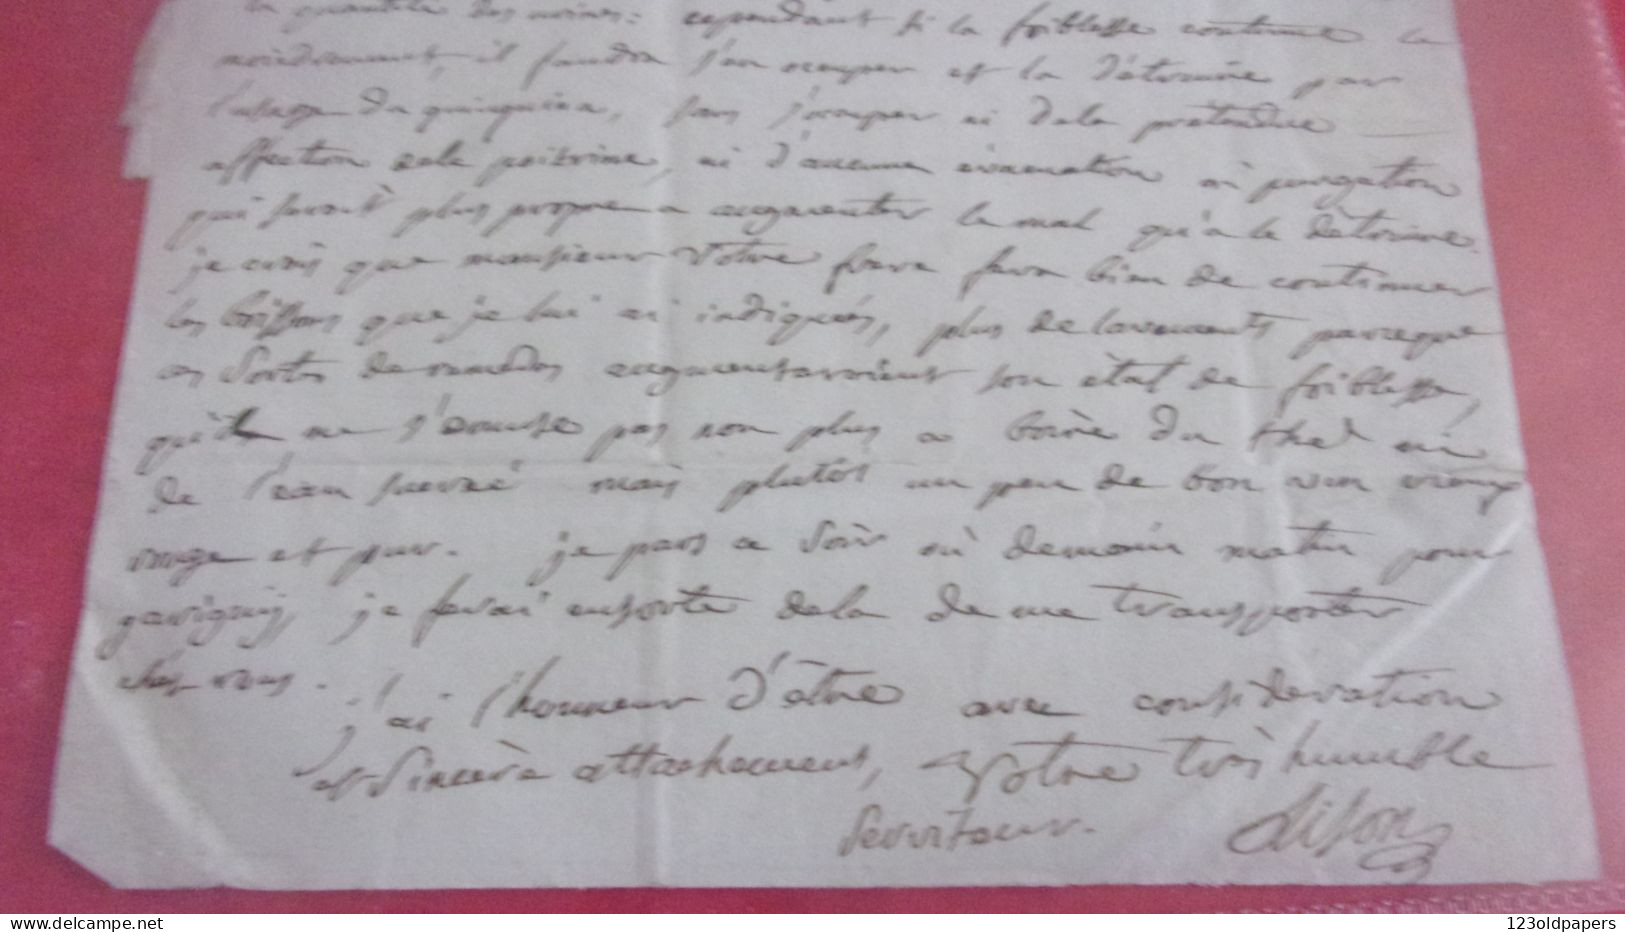 la quantité des moines: cependant si la foiblesse continue le
moindrement, il faudra s'en occuper et la détruire par
l'usage du quinquina, sans s'occuper ni dela prétendue
affection dela poitrine, ni d'aucune évacuation ni purgation
qui serait plus propre a augmenter le mal qu'a le détruire.
je crois que monsieur votre frere fera bien de continuer
les boissons que je lui ai indiqués, plus de lavements parceque
ces sortes de remedes augmenteroient son état de foiblesse,
qu'il ne s'amuse pas non plus a boire du thé ni
de l'eau sucrée mais plutôt un peu de bon vin vieux
rouge et pur. je pars ce soir où demain matin pour
savigny, je ferai ensorte dela de me transporter
chez vous.
j'ai l'honneur d'être avec considération
et sincère attachement, votre très humble
serviteur.
123oldpapers